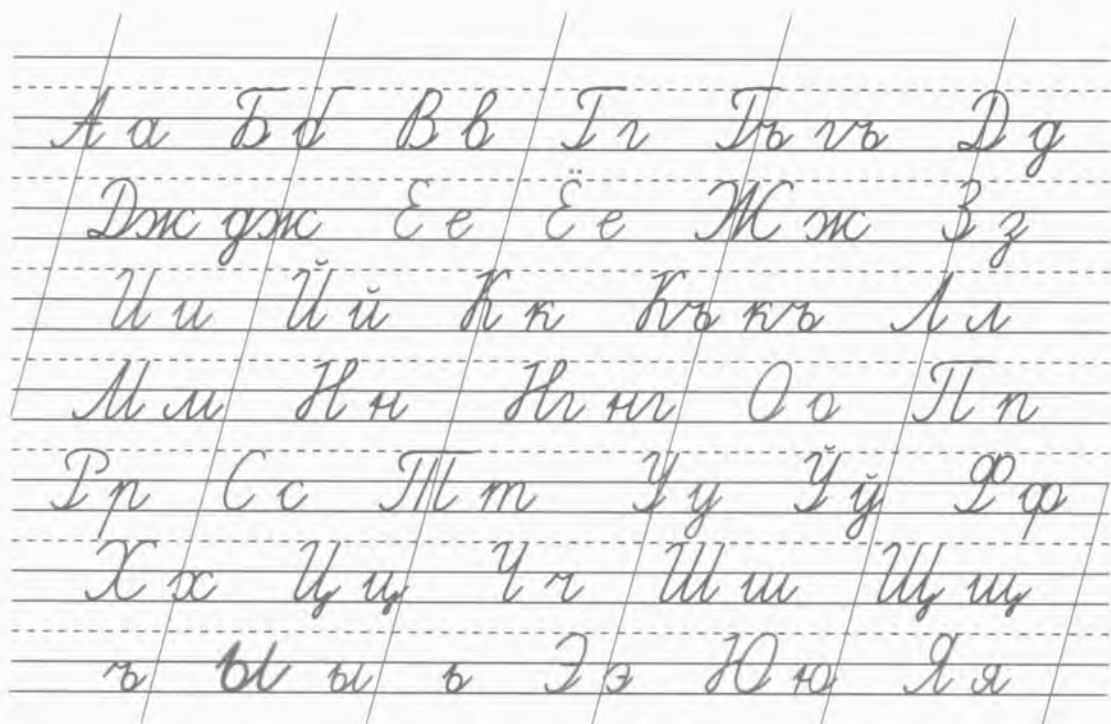 А а Б б В в Г г Гъ гъ Д д
Дж дж Е е Ё е Ж ж З з
И и Й й К к Къ къ Л л
М м Н н Нг нг О о П п
Р р С с Т т У у Ў ў Ф ф
Х х Ц ц Ч ч Ш ш Щ щ
ъ Ы ы ь Э э Ю ю Я я